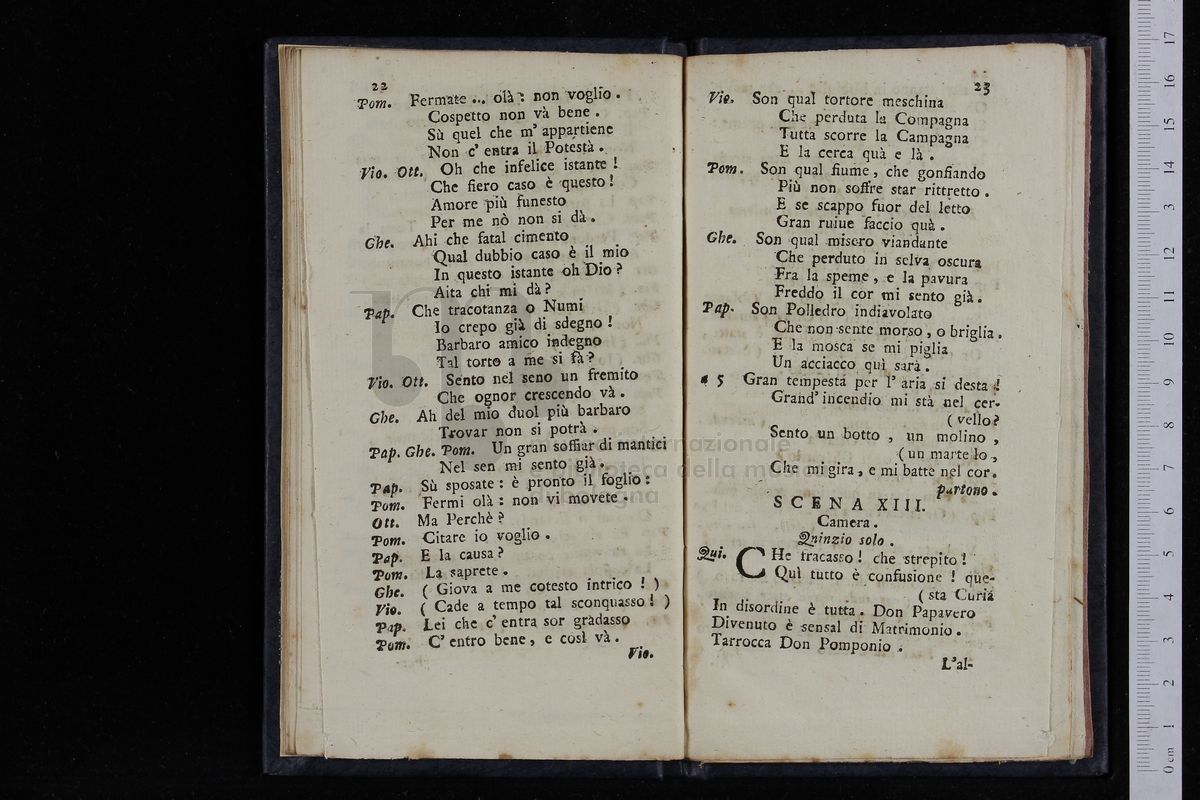 22
Pom. Fermate ... olà : non voglio .
Cospetto non và bene .
Sù quel che m' appartiene
Non c' entra il Potestà .
Vio. Ott. Oh che infelice istante !
Che fiero caso è questo !
Amore più funesto
Per me nò non si dà .
Ghe. Ahi che fatal cimento
Qual dubbio caso è il mio
In questo istante oh Dio ?
Aita chi mi dà ?
Pap. Che tracotanza o Numi
Io crepo già di sdegno !
Barbaro amico indegno
Tal torto a me si fà ?
Vio. Ott. Sento nel seno un fremito
Che ognor crescendo và .
Ghe. Ah del mio duol più barbaro
Trovar non si potrà .
Pap. Ghe. Pom. Un gran soffiar di mantici
Nel sen mi sento già .
Pap. Sù sposate : è pronto il foglio :
Pom. Fermi olà : non vi movete .
Ott. Ma Perchè ?
Pom. Citare io voglio .
Pap. E la causa ?
Pom. La saprete .
Ghe. ( Giova a me cotesto intrico ! )
Vio. ( Cade a tempo tal sconquasso ! )
Pap. Lei che c' entra sor gradasso
Pom. C' entro bene , e così và .
Vio.
23
Vio. Son qual tortore meschina
Che perduta la Compagna
Tutta scorre la Campagna
E la cerca quà e là .
Pom. Son qual fiume , che gonfiando
Più non soffre star rittretto .
E se scappo fuor del letto
Gran ruiue faccio quà .
Ghe. Son qual misero viandante
Che perduto in selva oscura
Fra la speme , e la pavura
Freddo il cor mi sento già .
Pap. Son Polledro indiavolato
Che non sente morso , o briglia .
E la mosca se mi piglia
Un acciacco quì sarà .
a 5 Gran tempesta per l' aria si desta !
Grand' incendio mi stà nel cer-
( vello ?
Sento un botto , un molino ,
( un martello ,
Che mi gira , e mi batte nel cor .
partono .
SCENA XIII.
Camera .
Quinzio solo .
Qui. CHe fracasso ! che strepito !
Quì tutto è confusione ! que-
( sta Curia
In disordine è tutta . Don Papavero
Divenuto è sensal di Matrimonio .
Tarrocca Don Pomponio .
L'al-
museo internazionale
e biblioteca della musica
di bologna
0 cm 1 2 3 4 5 6 7 8 9 10 11 12 3 14 15 16 17